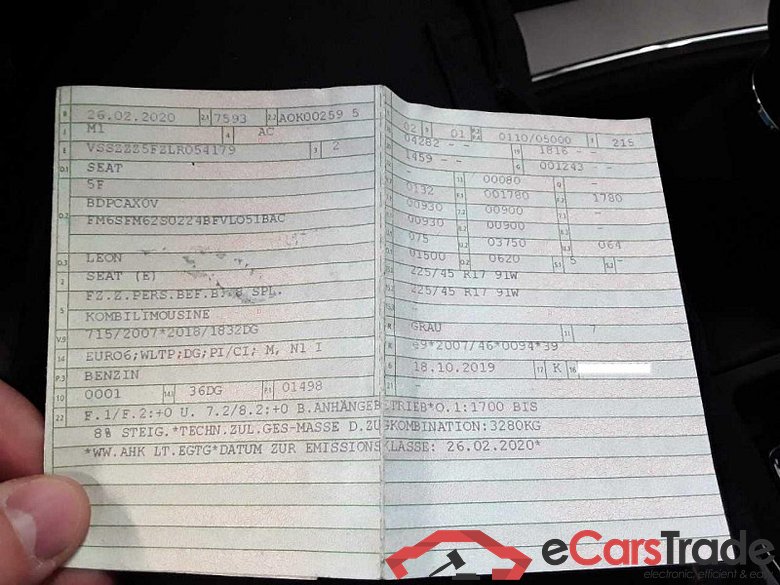 B 26.02.2020 2.1 7593 2.2 AOK00259 5
J M1 4 AC
E VSSZZZ5FZLR054179 3 2
D.1 SEAT
5F
BDPCAX0V
D.2 FM6SFM62S0224BFVLO51BAC
D.3 LEON
2 SEAT (E)
FZ.Z.PERS.BEF.B. 8 SPL.
5 KOMBILIMOUSINE
V.9 715/2007*2018/1832DG
14 EURO6;WLTP;DG;PI/CI; M, N1 I
P.3 BENZIN
10 0001 14.1 36DG P.1 01498
22 F.1/F.2:+0 U. 7.2/8.2:+0 B.ANHÄNGEBETRIEB*O.1:1700 BIS
8% STEIG.*TECHN.ZUL.GES-MASSE D.ZUGKOMBINATION:3280KG
*WW.AHK LT.EGTG*DATUM ZUR EMISSIONSKLASSE: 26.02.2020*
02 9 01 P.2 P.4 0110/05000 T 215
04282 - - 19 1816 - -
1459 - - G 001243 - -
- 00080 -
0132 F.1 001780 F.2 1780
00930 00900 -
00930 00900 -
075 U.2 03750 U.3 064
01500 O.2 0620 S.1 5 S.2 -
225/45 R17 91W
225/45 R17 91W
-
R GRAU 11 7
K e9*2007/46*0094*39
6 18.10.2019 17 K 16
21 -
eCarsTrade
electronic, efficient & ea